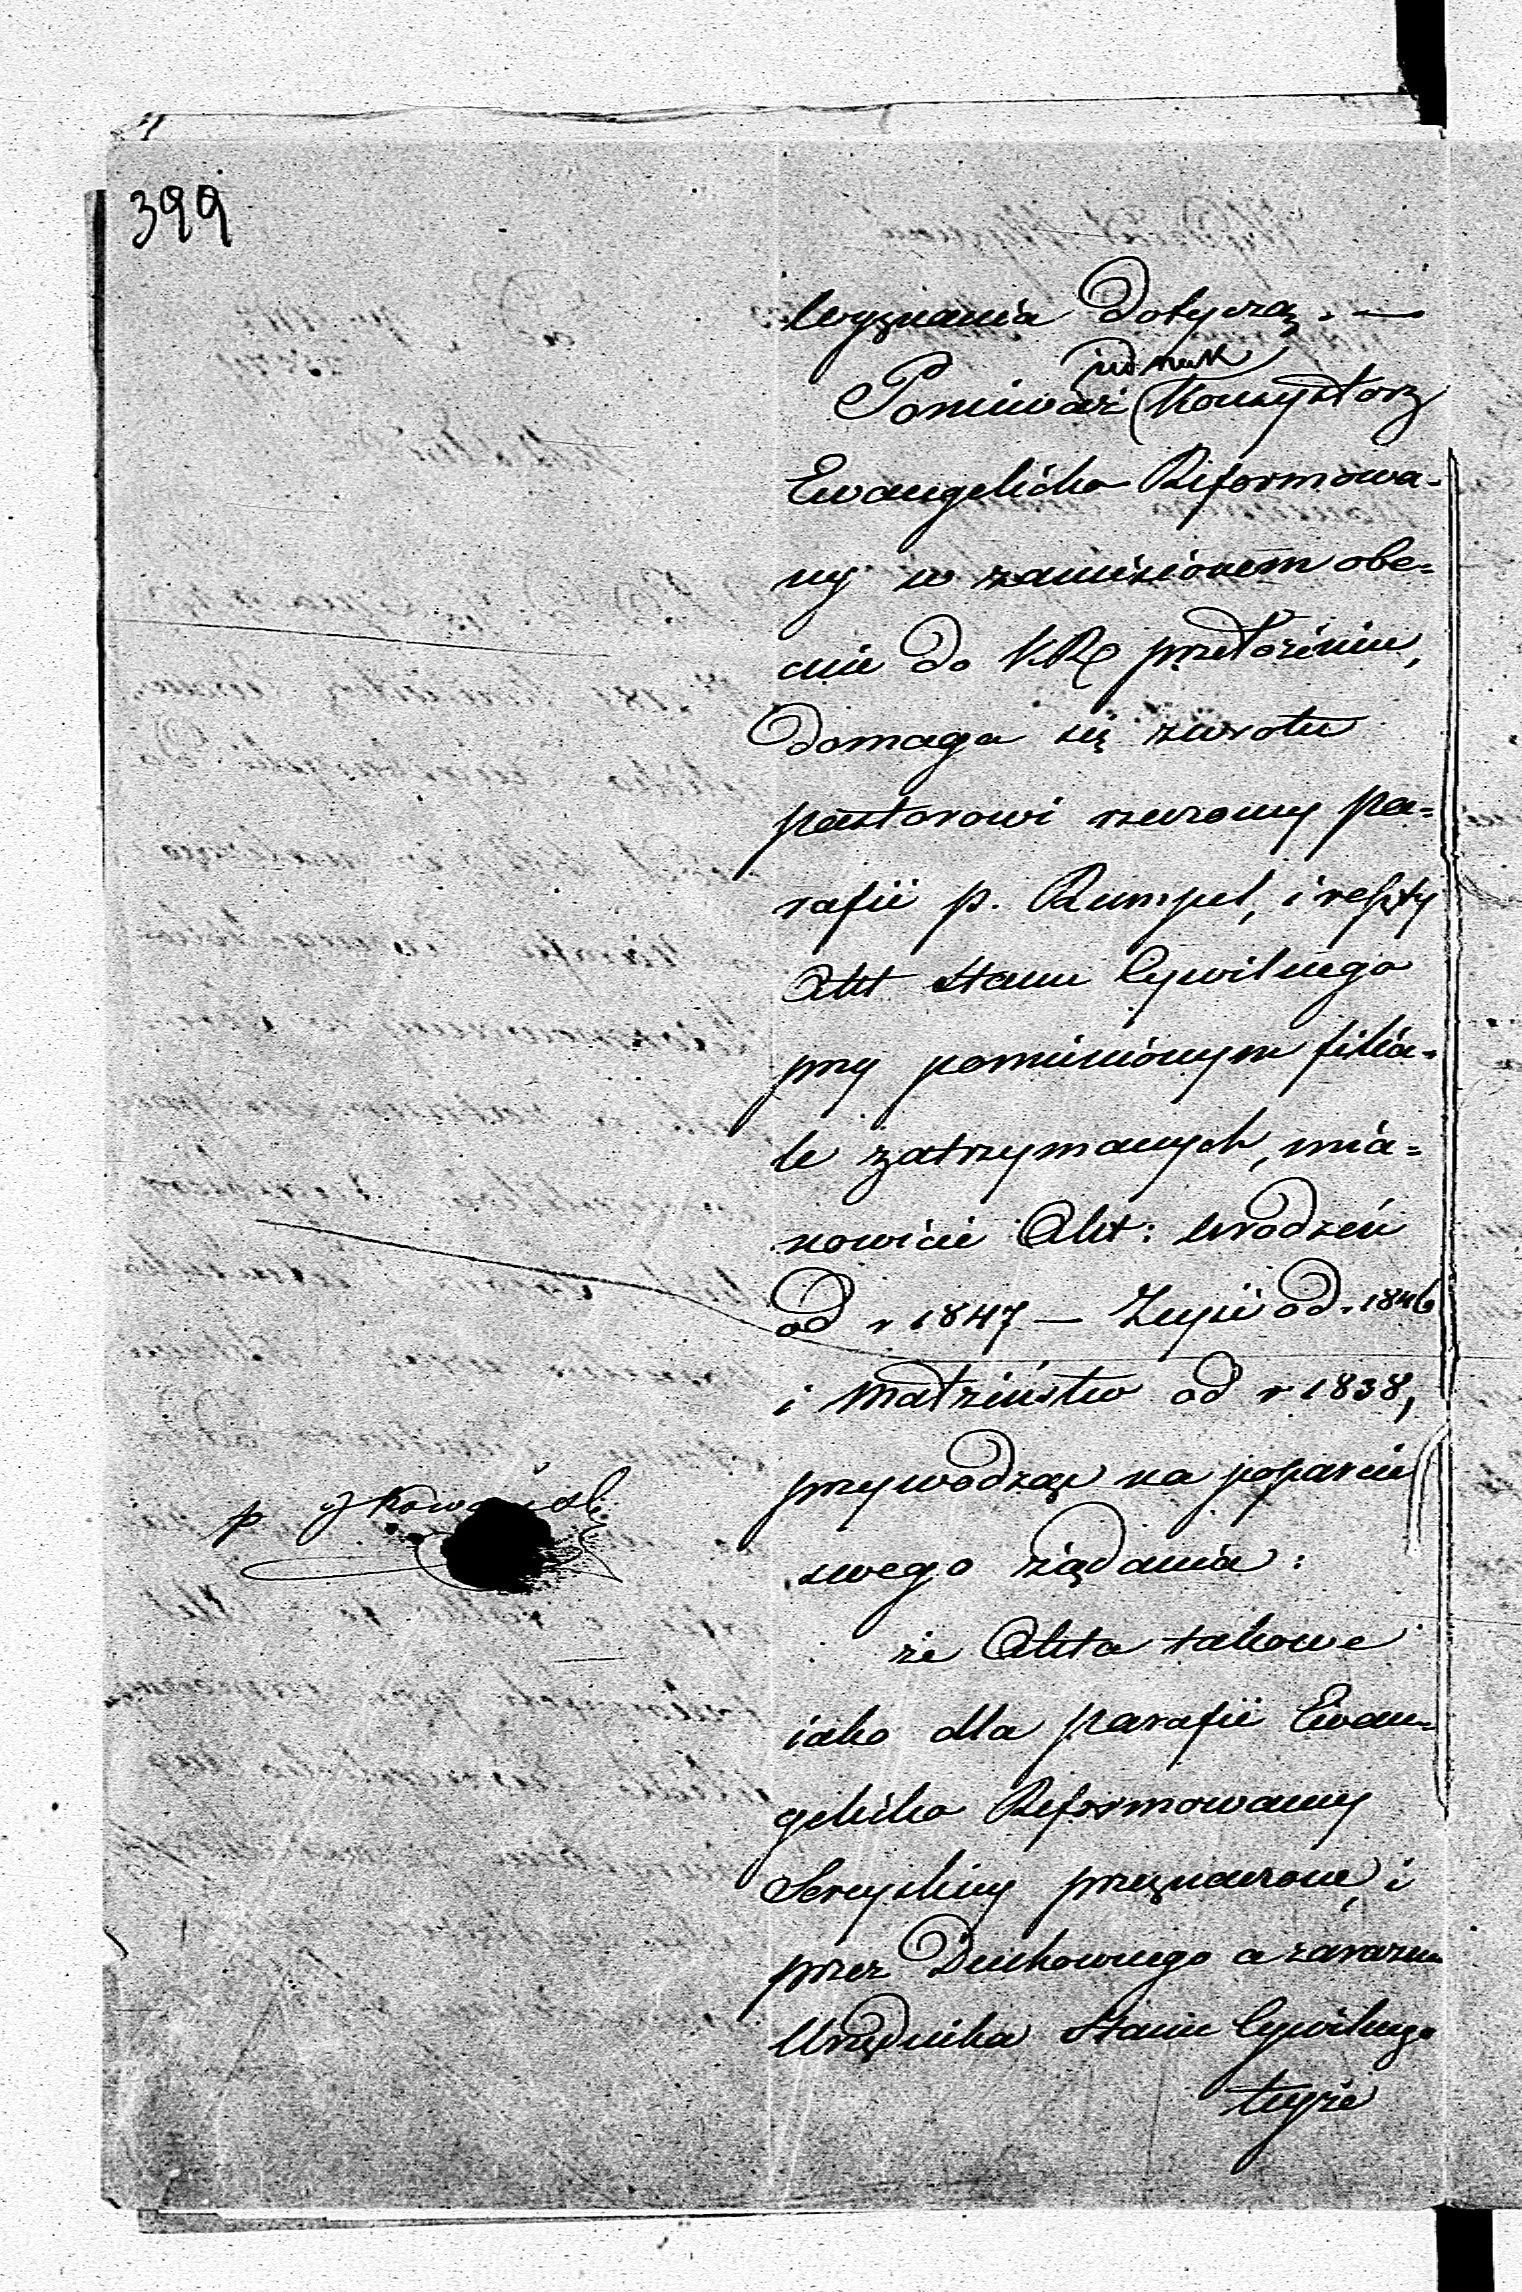 399
wyznania dotyczą. —
jednak
Ponieważ Konsystorz
Ewangelicko Reformowa-
ny w zaniesionem obe-
cnie do KR przełożeniu,
domaga się zwrotu
pastorowi rzeczoney pa-
rafii p. Rumpel, i reszty
Akt Stanu Cywilnego
przy pomienionym filia-
le zatrzymanych, mia-
nowicie Akt: urodzeń
od r 1847 — Zejść od r 1846
i Małżeństw od r 1838,
przywodząc na poparcie
swego żądania:
że Akta takowe
iako dla parafii Ewan-
gelicko Reformowaney
Sereyskiey przeznaczone, i
przez Duchownego a zarazem
Urzędnika Stanu Cywilnego
teyże
p